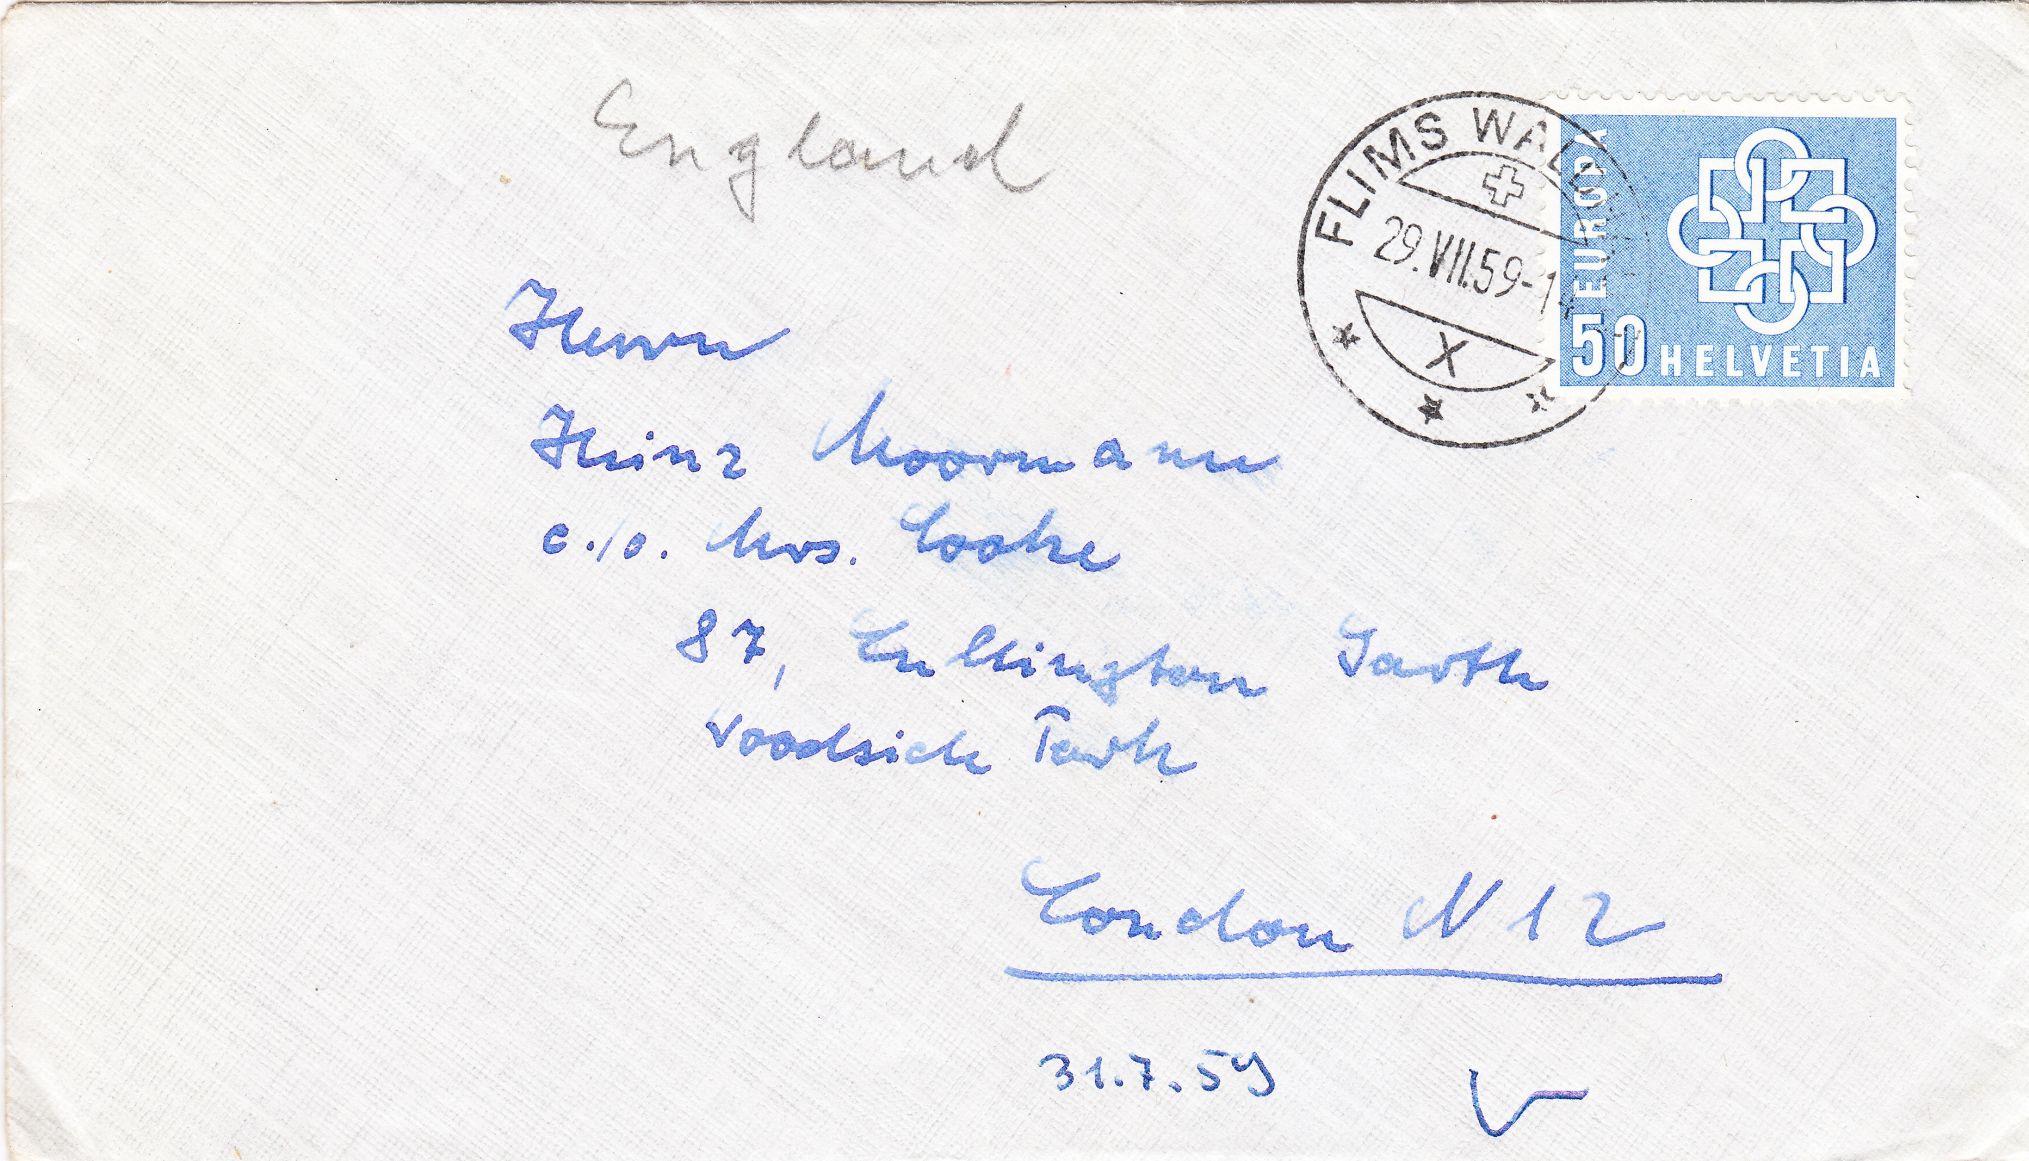 England
FLIMS WALDHAUS
29.VII.59-1
X
EUROPA
50 HELVETIA
Herrn
Heinz Moormann
c./o. Mrs. Cooke
87, Cullington Garth
Woodside Park
London N12
31.7.59